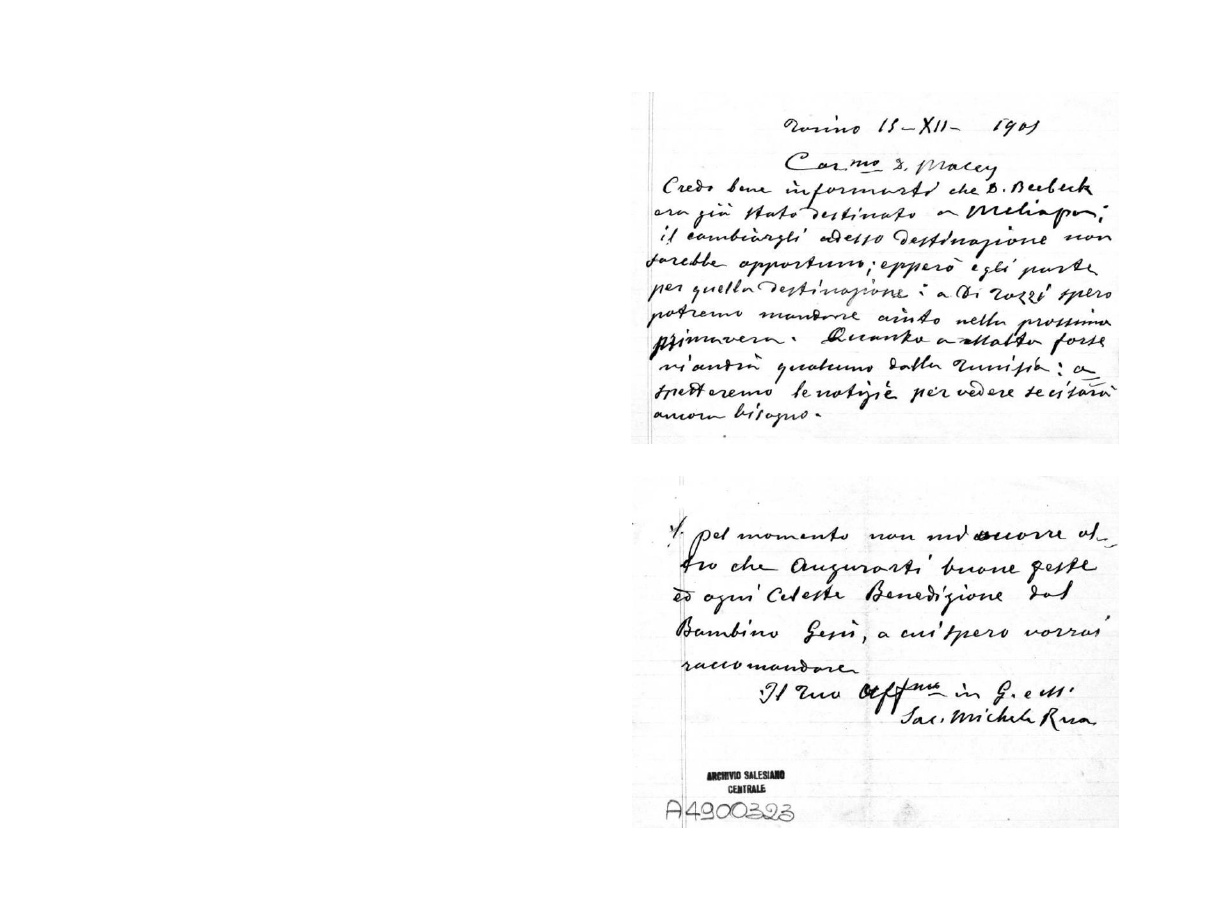 Torino 15-XII- 1901
Car.mo D. Macey
Credo bene informarti che D. Beebeck
era già stato destinato a Meliapor;
il cambiargli adesso destinazione non
sarebbe opportuno; epperò egli parte
per quella destinazione: a Di Rozzi spero
potremo mandare aiuto nella prossima
primavera. Quanto a Malta forse
vi andrà qualcuno dalla Tunisia: a
spetteremo le notizie per vedere se ci sarà
ancora bisogno.
./. Pel momento non mi occorre al-
tro che augurarti buone feste
ed ogni Celeste Benedizione dal
Bambino Gesù, a cui spero vorrai
raccomandare
Il Tuo Aff.mo in G. e M.
Sac. Michele Rua
ARCHIVIO SALESIANO
CENTRALE
A4900323